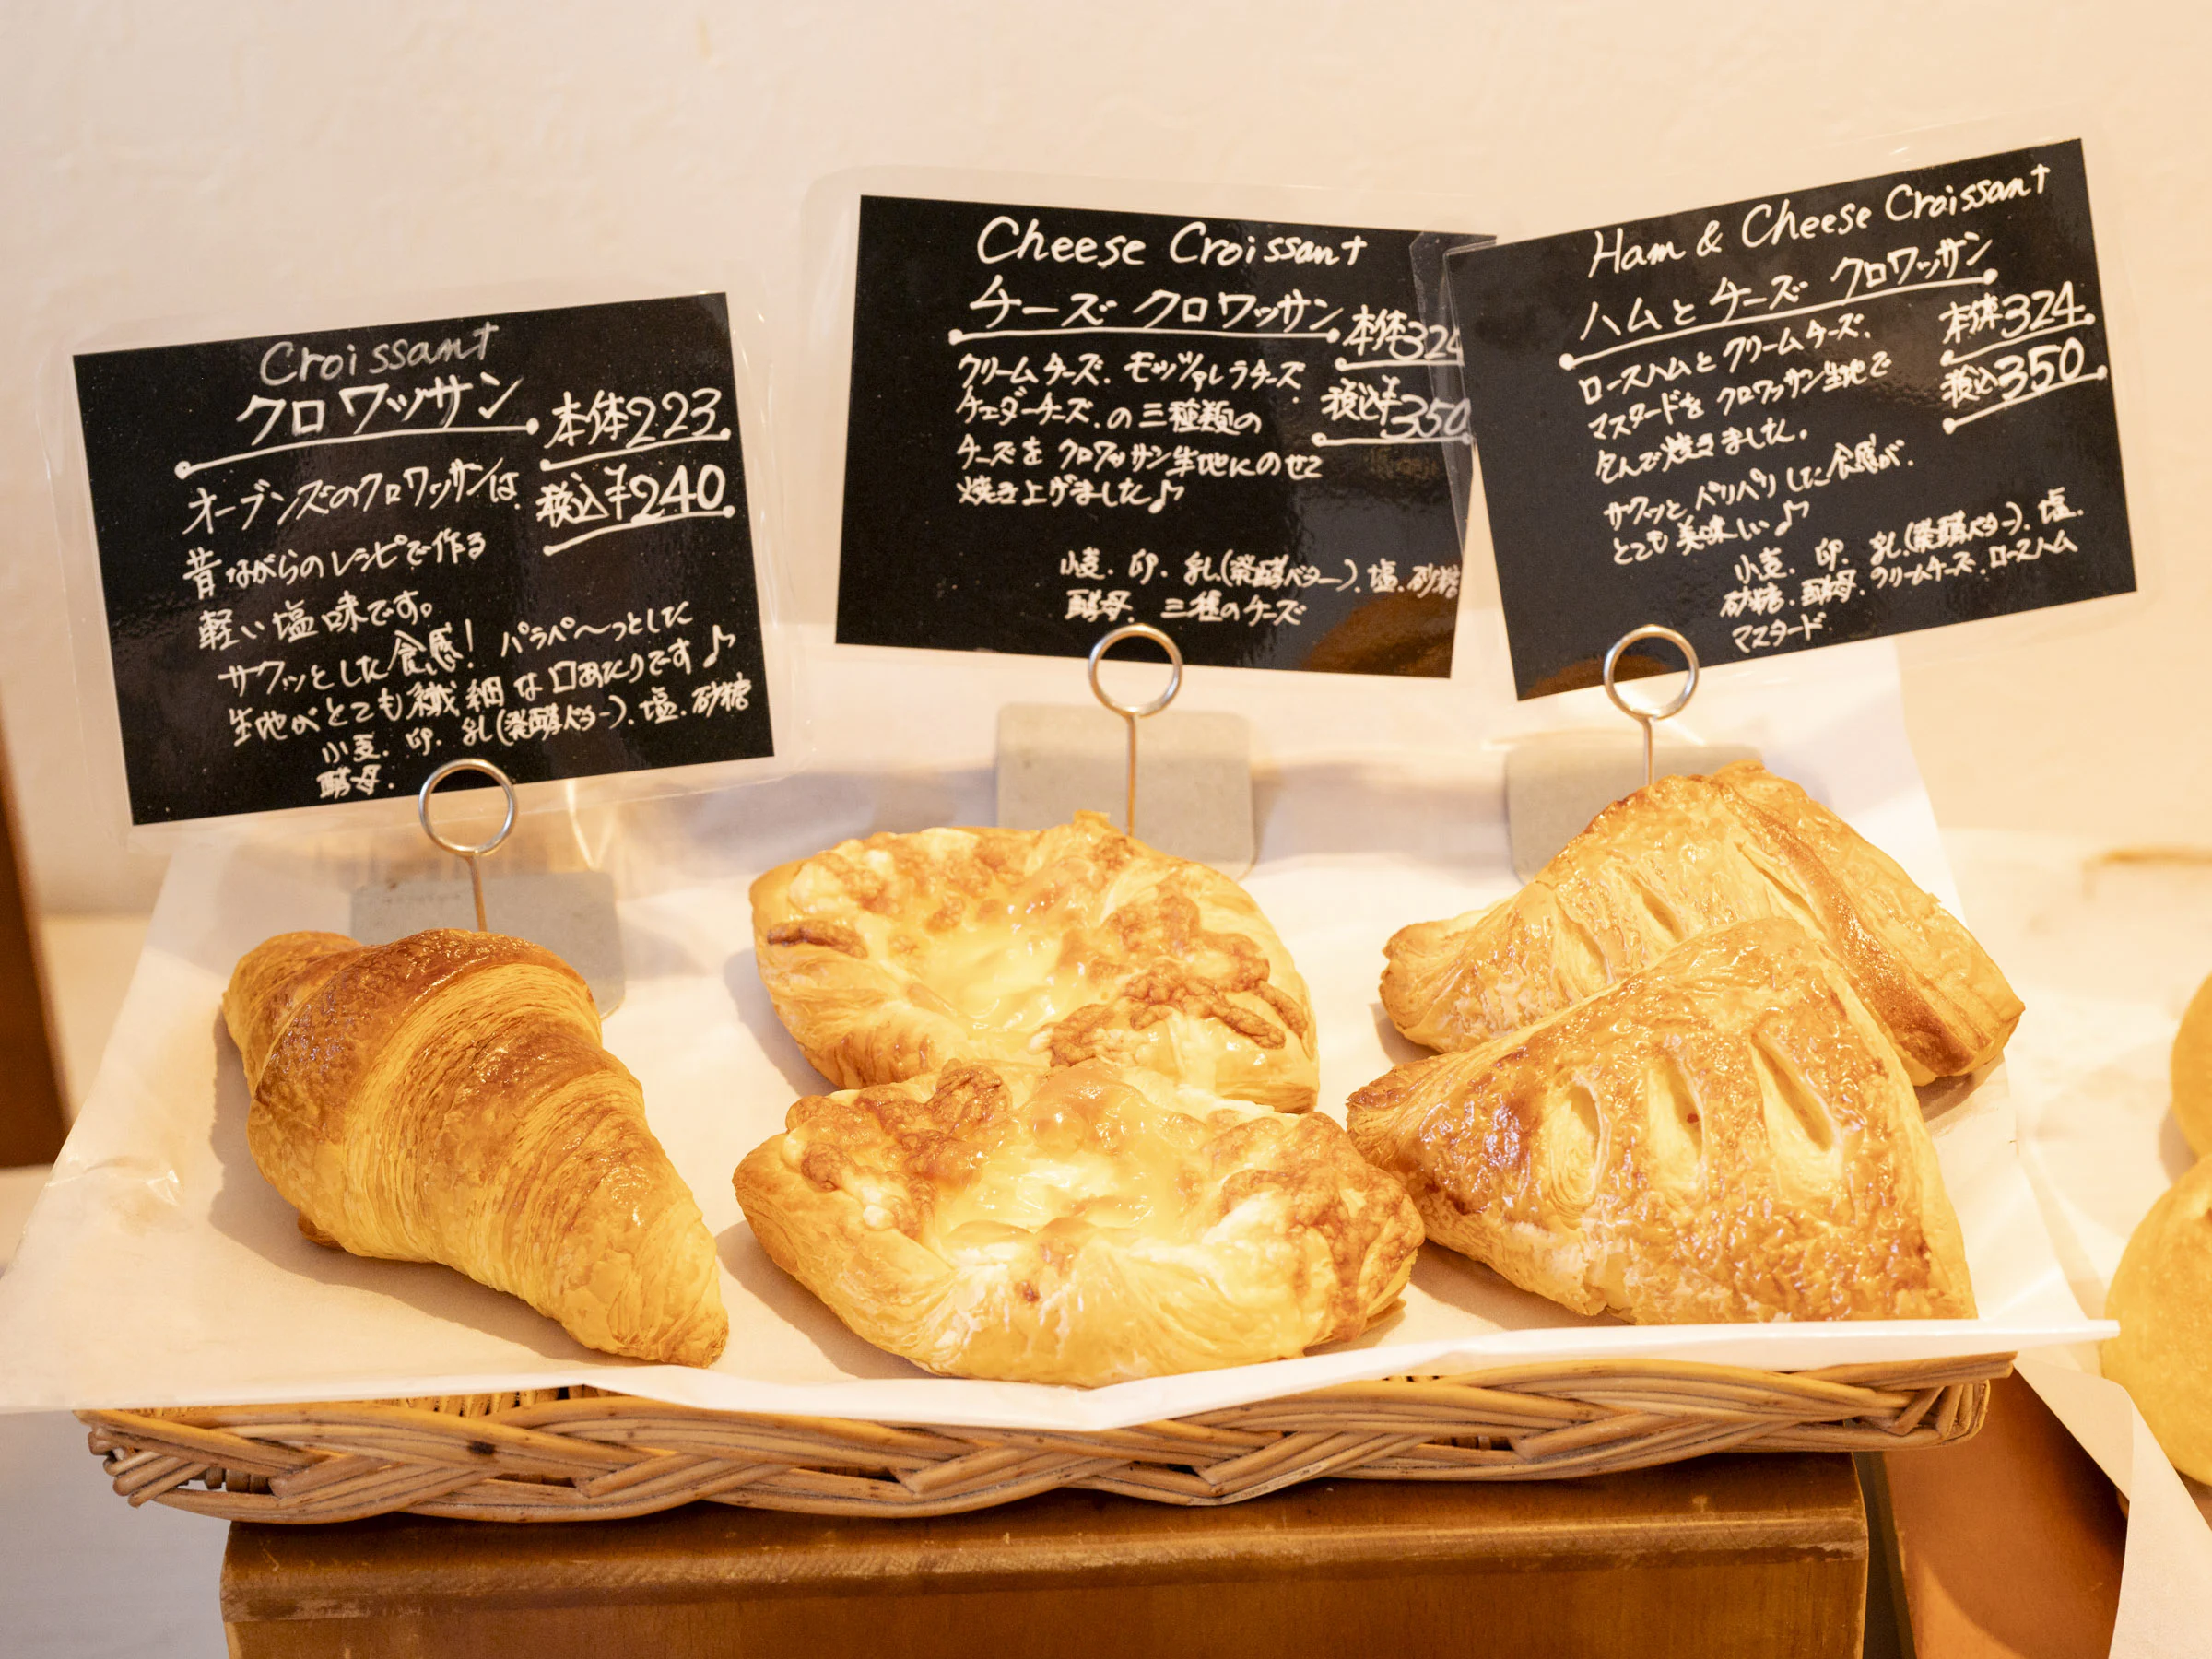 Croissant
クロワッサン
本体223
税込¥240
オーブンズのクロワッサンは、
昔ながらのレシピで作る
軽い塩味です。
サクッとした食感！パラパ〜っとした
生地がとても繊細な口あたりです♪
小麦.卵.乳(発酵バター).塩.砂糖
酵母.
Cheese Croissant
チーズ クロワッサン
本体324
税込¥350
クリームチーズ.モッツァレラチーズ
チェダーチーズ.の三種類の
チーズをクロワッサン生地にのせて
焼き上げました♪
小麦.卵.乳(発酵バター).塩.砂糖
酵母.三種のチーズ
Ham & Cheese Croissant
ハムとチーズ クロワッサン
本体324
税込350
ロースハムとクリームチーズ.
マスタードをクロワッサン生地で
包んで焼きました。
サクッとパリパリした食感が.
とても美味しい♪
小麦.卵.乳(発酵バター).塩.
砂糖.酵母.クリームチーズ.ロースハム
マスタード